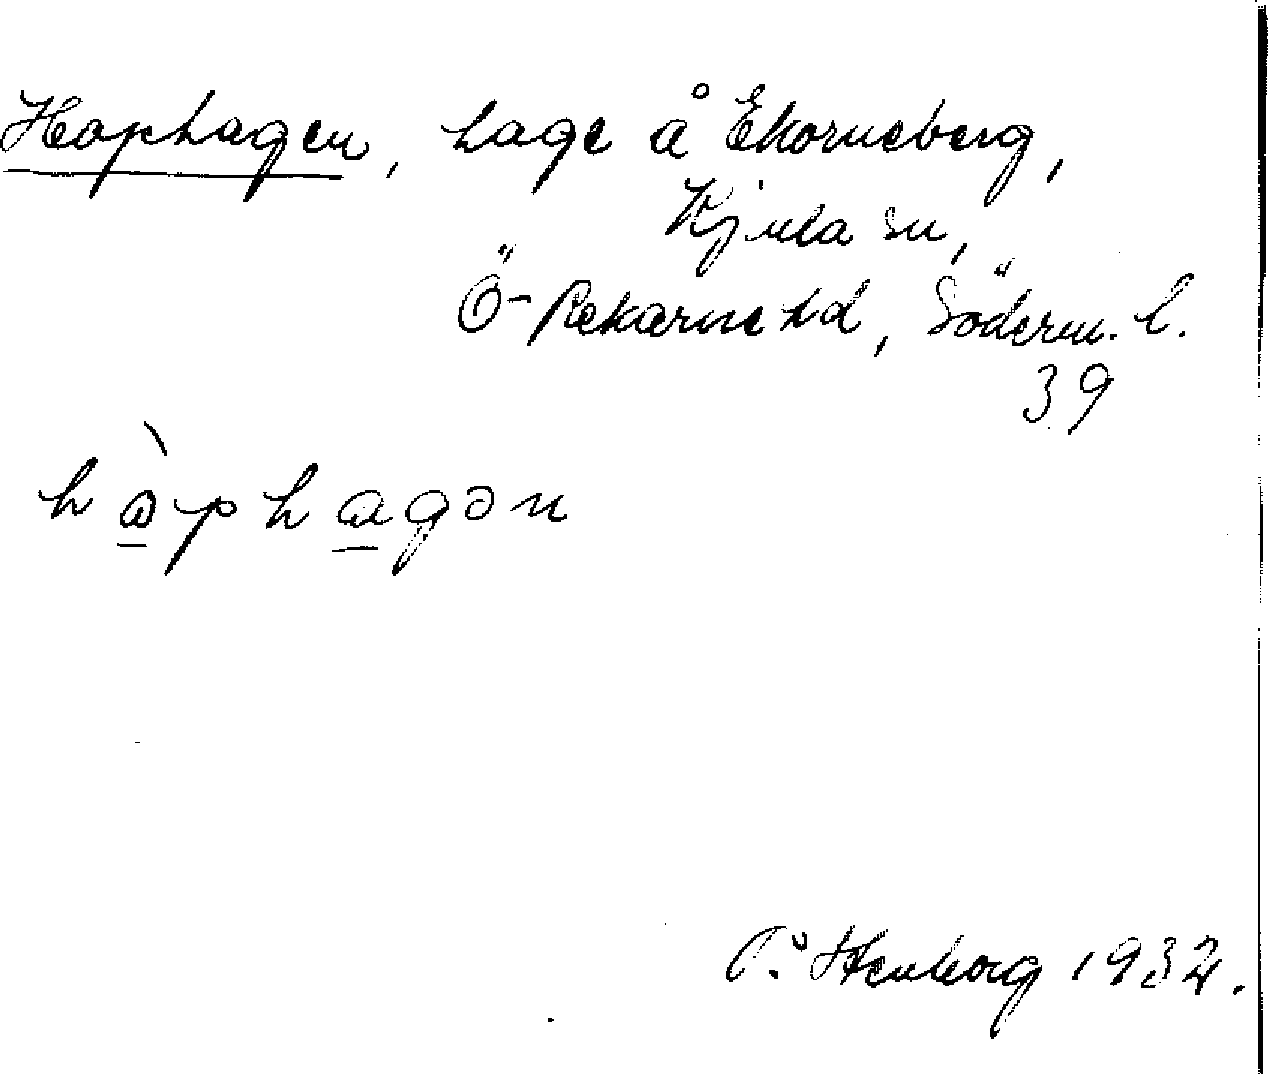 Haphagen, hage å Ekorneberg,
Kjula sn,
Ö-Rekarne hd, Söderm. l.
39
hàphagən
Stenborg 1932.